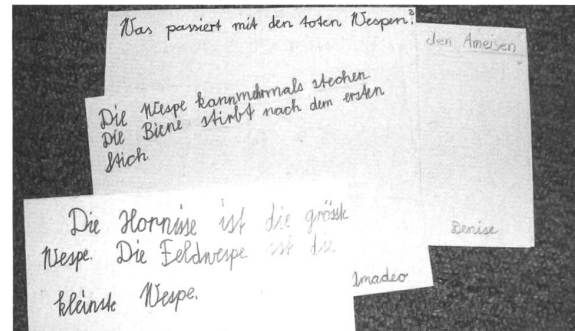 Was passiert mit den toten Wespen?
den Ameisen
Die Wespe kann mehrmals stechen
Die Biene stirbt nach dem ersten
Stich
Denise
Die Hornisse ist die grösste
Wespe. Die Feldwespe ist die
kleinste Wespe.
Imadeo